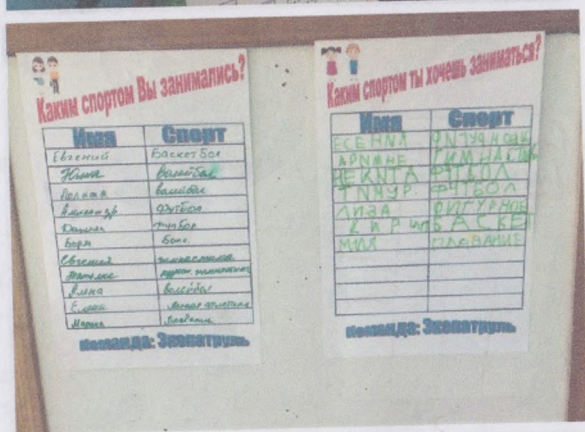 Каким спортом Вы занимались?
Имя Спорт
Евгений Баскетбол
Нина Волейбол
Полина валейбол
Александр Футбол
футбол
Боря Бокс
Евгения гимнастика
Анна Волейбол
Елена Легкая атлетика
Мария
Команда: Экопатруль
Каким спортом ты хочешь заниматься?
Имя Спорт
ЕСЕНИЯ ФИГУРНОЕ
АРИАНЕ ГИМНАСТИК
НЕКИТА ФУТБОЛ
ТИМУР ФУТБОЛ
ЛИЗА ФИГУРНОЕ
КИРИЛ БАСКЕТ
МИЯ ПЛАВАНИЕ
Команда: Экопатруль